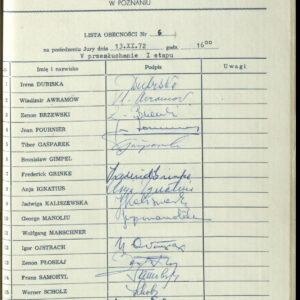 W POZNANIU
LISTA OBECNOŚCI Nr 6
na posiedzeniu Jury dnia 13.XI.72 godz. 10⁰⁰
V przesłuchanie I etapu
Imię i nazwisko Podpis Uwagi
1 Irena DUBISKA Dubiska
2 Wladimir AWRAMOW
3 Zenon BRZEWSKI
4 Jean FOURNIER
5 Tibor GASPAREK
6 Bronisław GIMPEL
7 Frederick GRINKE Frederick Grinke
8 Anja IGNATIUS Anja Ignatius
9 Jadwiga KALISZEWSKA
10 George MANOLIU
11 Wolfgang MARSCHNER
12 Igor OJSTRACH
13 Zenon PŁOSZAJ
14 Franz SAMOHYL
15 Werner SCHOLZ